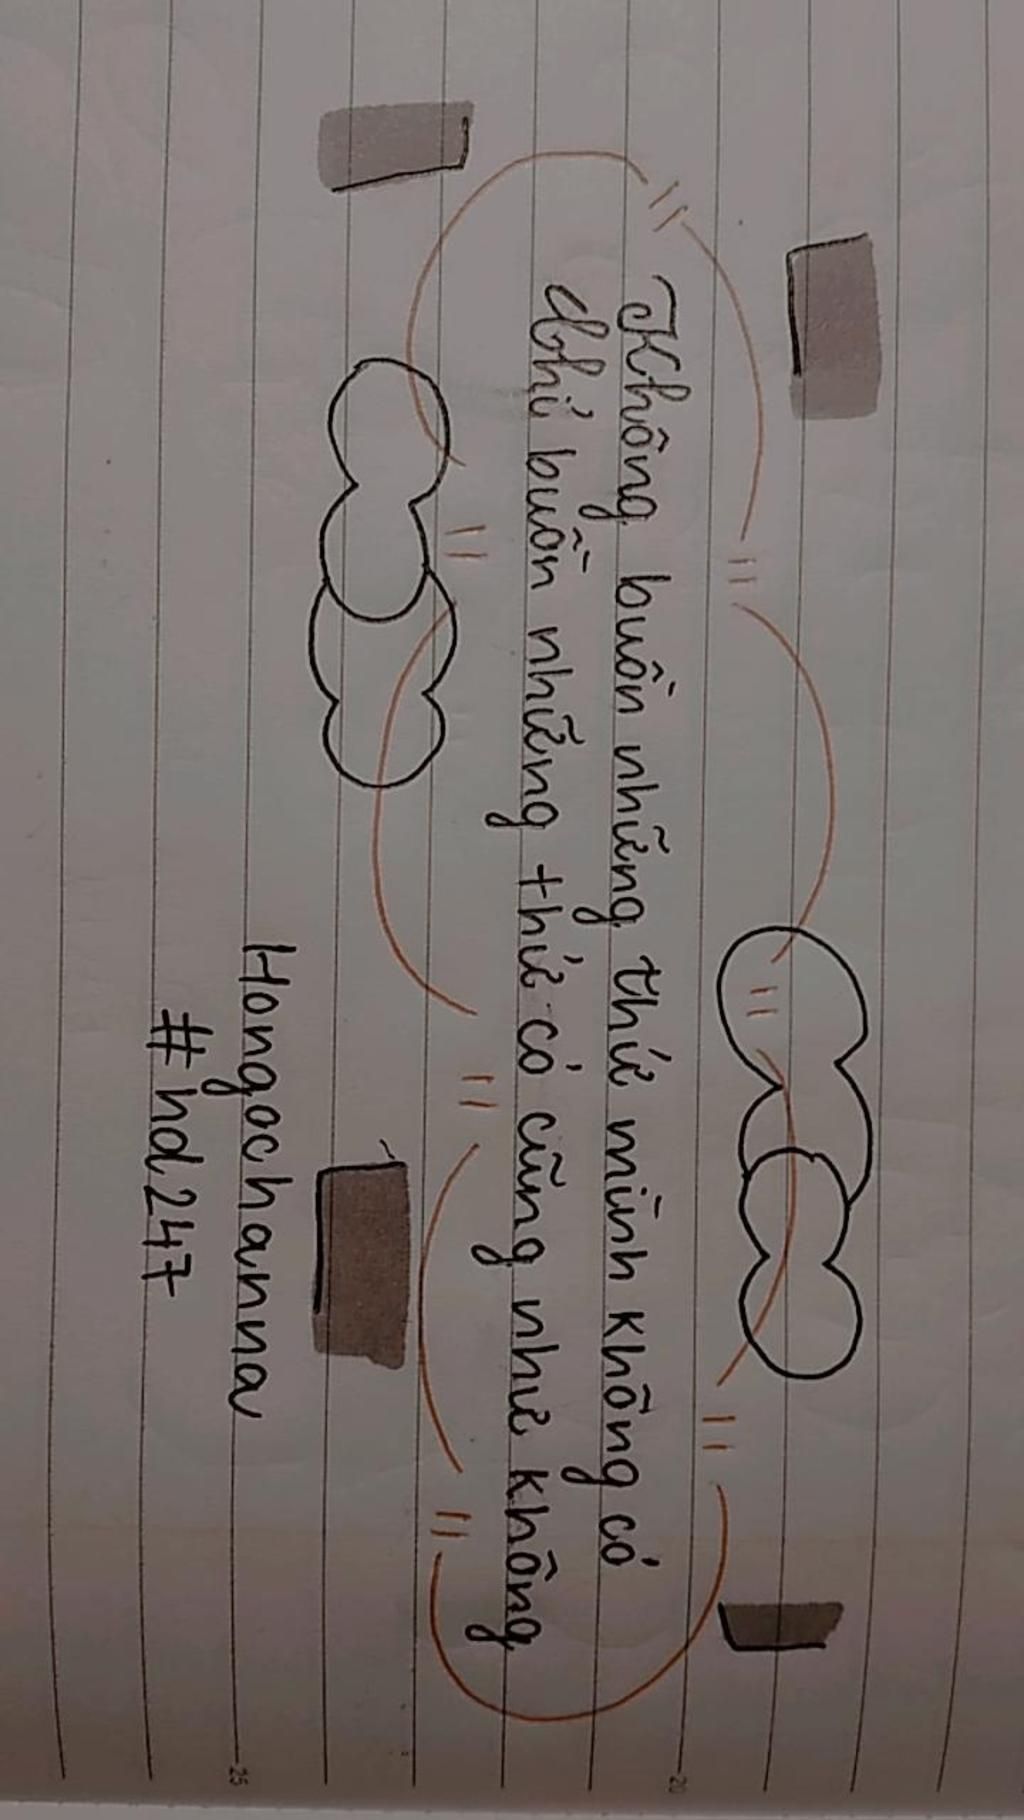 Không buồn những thứ mình không có
Chỉ buồn những thứ có cũng như không
Hongochanna
#hd247
20
25